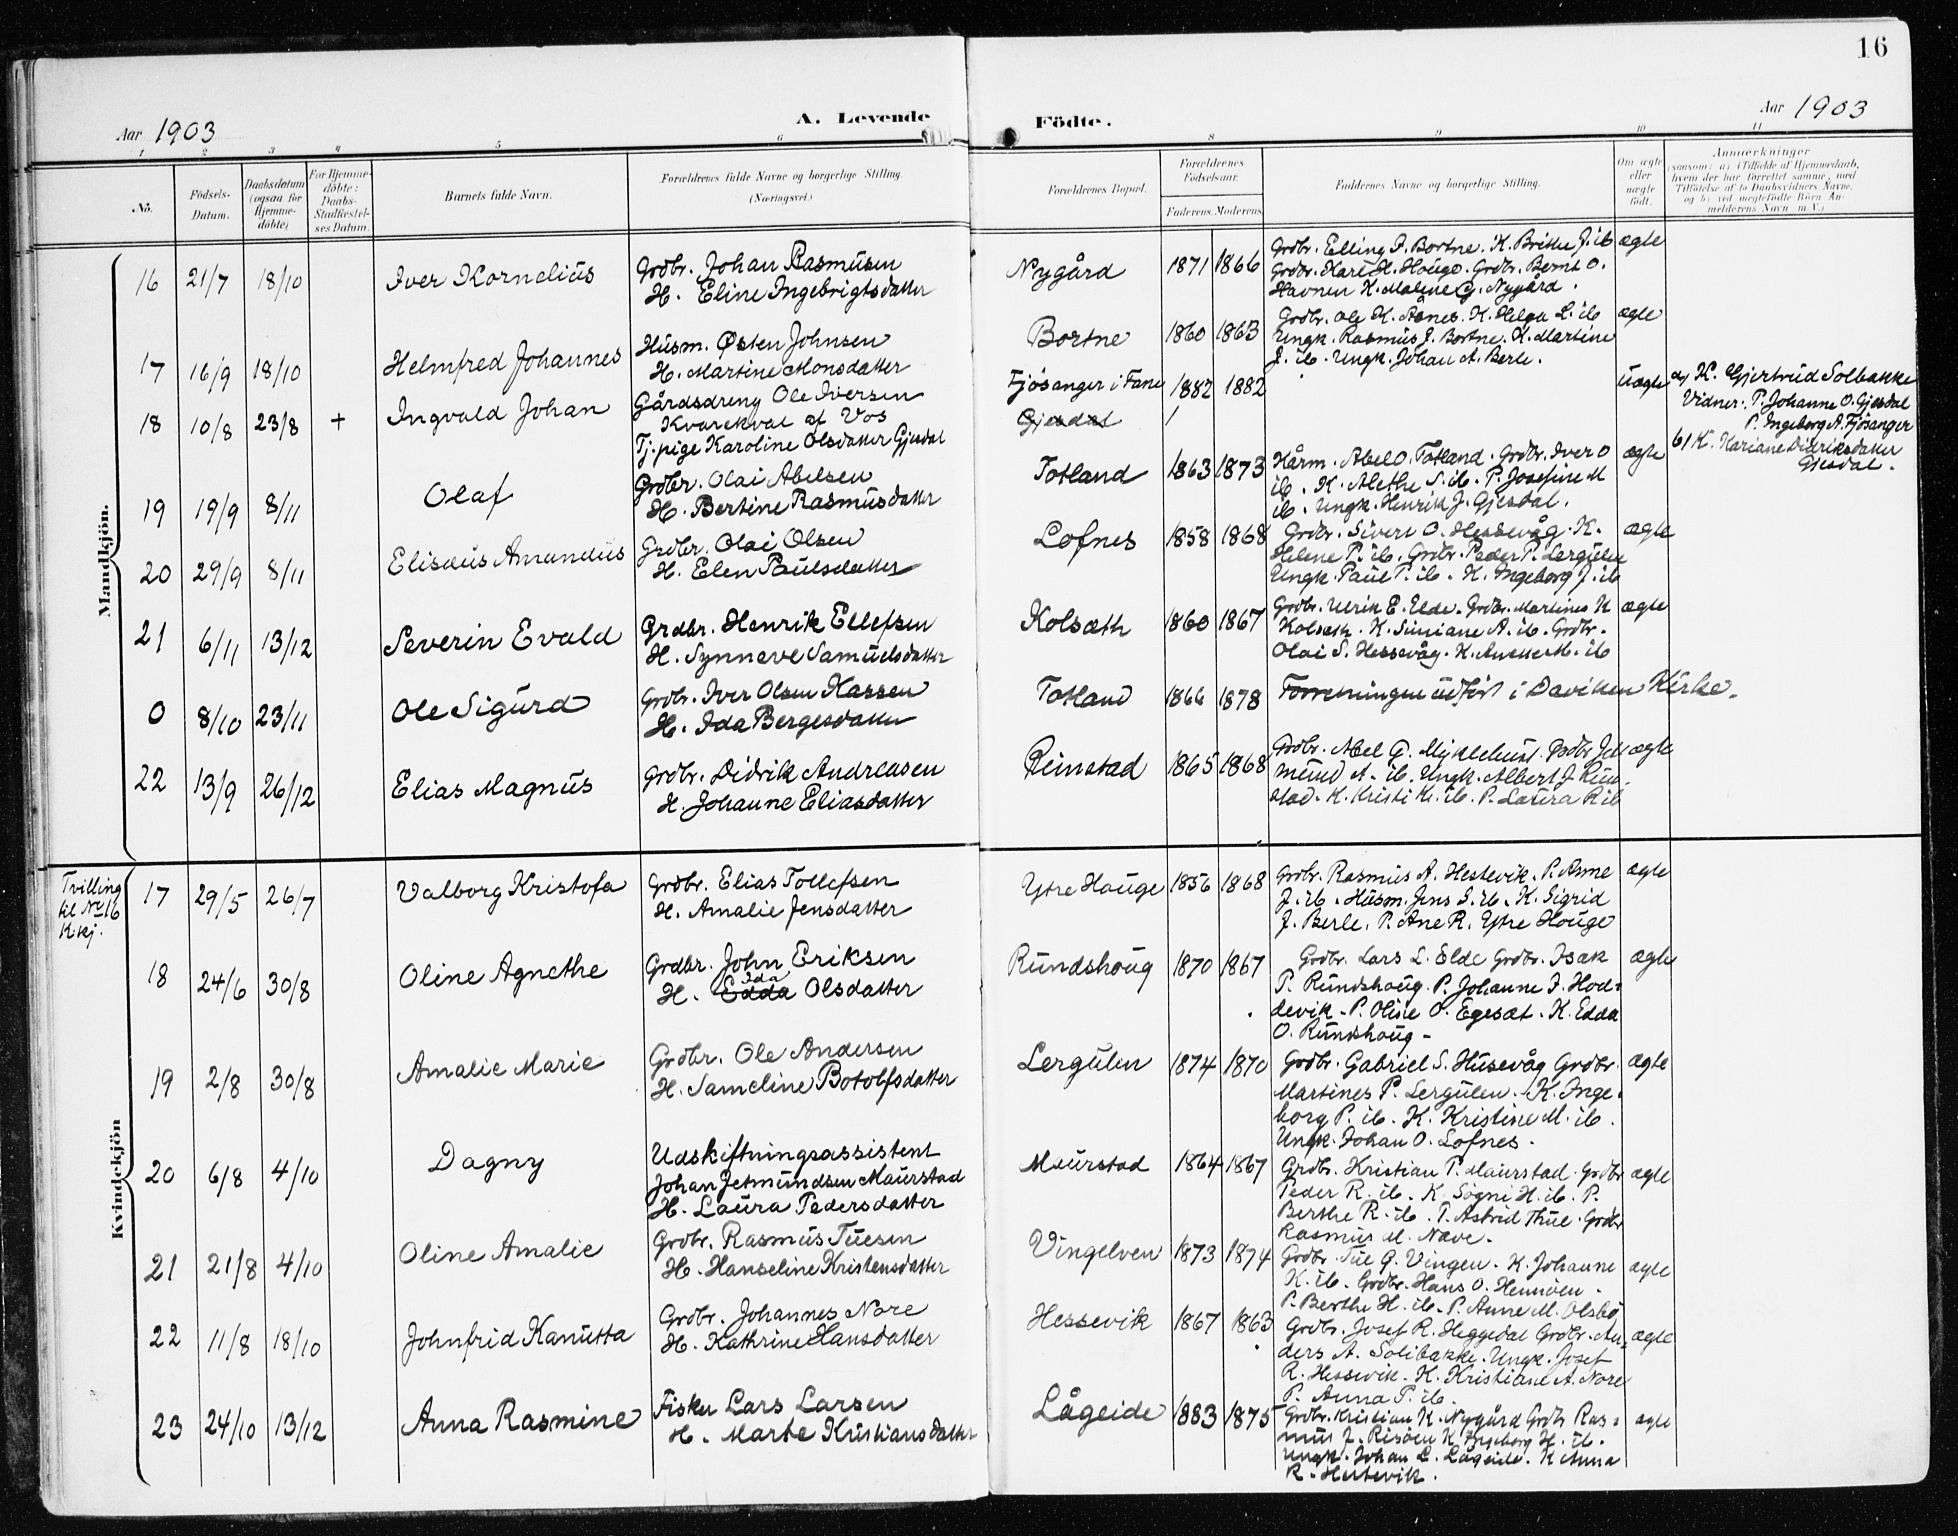 16
Aar 1903
A. Levende Födte.
Aar 1903
1 2 3 4 5 6 8 9 10 11
No.
Födsels-Datum.
Daabsdatum (ogsaa for Hjemme-döbte)
For Hjemme-döbte: Daabs-Stadfæstel-ses Datum.
Barnets fulde Navn.
Forældrenes fulde Navne og borgerlige Stilling. (Næringsvei.)
Forældrenes Bopæl.
Forældrenes Födselsaar.
Faderens. Moderens.
Faddernes Navne og borgerlige Stilling.
Om ægte eller uægte födt.
Anmærkninger
(saasom: a) i Tilfælde af Hjemmedaab, hvem der har forrettet samme, med Tilföielse af to Daabsvidners Navne, og b) ved uægtefödte Börn An-melderens Navn m. V.)
Mandkjön.
16 21/7 18/10 Iver Kornelius
Grdbr. Johan Rasmusen
H. Eline Ingebrigtsdatter
Nygård 1871 1866
Grdbr. Elling J. Bortne. K. Brithe J. ib
Grdbr. Kare H. Hougo. Grdbr. Bernt O.
Havnen K. Malene G. Nygård.
ægte
17 16/9 18/10 Helmfred Johannes
Husm. Østen Johnsen
H. Martine Monsdatter
Bortne 1860 1863
Grdbr. Ole K. Aanes. K. Helga L. ib
Ungk. Rasmus J. Bortne. K. Martine
J. ib. Ungk. Johan A. Berle.
ægte
18 10/8 23/8 + Ingvald Johan
Gårdsdreng Ole Iversen
Kvarekval af Vos
Tj. pige Karoline Olsdatter Gjesdal
Fjösanger i Fane
Gjesdal
1882 1882
uægte
a) K. Gjertrud Solbakke
Vidner: P. Johanne O. Gjesdal
P. Ingeborg A. Fjösanger
b) K. Kariane Didriksdatter
Gjesdal.
19 19/9 8/11 Olaf
Grdbr. Olai Abelsen
H. Bertine Rasmusdatter
Totland 1863 1873
Hårm. Abel O. Totland. Grdbr. Iver O
ib. K. Alethe S. ib. P. Josefine M
ib. Ungk. Henrik J. Gjesdal.
ægte
20 29/9 8/11 Elisæus Amandus
Grdbr. Olai Olsen
H. Elen Paulsdatter
Lofnes 1858 1868
Grdbr. Sivert O. Hessevåg. K.
Helene P. ib. Grdbr. Peder P. Lergulen
Ungk. Paul P. ib. K. Ingeborg J. ib
ægte
21 6/11 13/12 Severin Evald
Grdbr. Henrik Ellefsen
H. Synneve Samuelsdatter
Kolsæth 1860 1867
Grdbr. Ulrik E. Elde. Grdbr. Martines K
Kolsæth. K. Simiane A. ib. Grdbr.
Olai S. Hessevåg. K. Anette M. ib
ægte
0 8/10 23/11 Ole Sigurd
Grdbr. Iver Olsen Kassen
H. Ida Bergesdatter
Totland 1866 1878
Forretningen udfört i Daviken Kirke.
22 13/9 26/12 Elias Magnus
Grdbr. Didrik Andreasen
H. Johanne Eliasdatter
Reimstad 1865 1868
Grdbr. Abel G. Myklebust. Grdbr. Jet-
mund A. ib. Ungk. Albert J. Rim-
stad. K. Kristi K. ib. P. Laura R ib
ægte
Kvindekjön
Tvilling
til No 16
K.kj.
17 29/5 26/7 Valborg Kristofa
Grdbr. Elias Tollefsen
H. Amalie Jensdatter
Ytre Houge 1856 1868
Grdbr. Rasmus A. Hestevik. P. Anne
J. ib. Husm. Jens S. ib. K. Sigrid
J. Berle. P. Ane R. Ytre Houge
ægte
18 24/6 30/8 Oline Agnethe
Grdbr. John Eriksen
Ida
H. Edda Olsdatter
Rundshoug 1870 1867
Grdbr. Lars L. Elde Grdbr. Isak
P. Rundshoug. P. Johanne J. Hod-
devik. P. Oline O. Egesæt. K. Edda
O. Rundshoug.
ægte
19 2/8 30/8 Amalie Marie
Grdbr. Ole Andersen
H. Sameline Botolfsdatter
Lergulen 1874 1870
Grdbr. Gabriel S. Husevåg Grdbr.
Martines P. Lergulen. K. Inge-
borg P. ib. K. Kristine M. ib.
Ungk. Johan O. Lofnes.
ægte
20 6/8 4/10 Dagny
Udskiftningsassistent
Johan Jetmundsen Maurstad
H. Laura Pedersdatter
Maurstad 1864 1867
Grdbr. Kristian P. Maurstad. Grdbr
Peder R. ib. K. Søgni H. ib. P.
Berthe R. ib. P. Astrid Thue. Grdbr
Rasmus M. Nave.
ægte
21 21/8 4/10 Oline Amalie
Grdbr. Rasmus Tuesen
H. Hanseline Kristensdatter
Vingelven 1873 1874
Grdbr. Tue G. Vingen. K. Johanne
K. ib. Grdbr. Hans O. Hennöen.
P. Berthe H. ib. P. Anne M. Olsbö
ægte
22 11/8 18/10 Johnfrid Kanutta
Grdbr. Johannes Nore
H. Kathrine Hansdatter
Hessevik 1867 1863
Grdbr. Josef R. Heggedal Grdbr. An-
ders A. Solibakke. Ungk. Josef
R. Hessevik. K. Kristiane A. Nore
P. Anna P. ib.
ægte
23 24/10 13/12 Anna Rasmine
Fisker Lars Larsen
H. Marte Kristiansdatter
Lågeide 1883 1875
Grdbr. Kristian K. Nygård Grdbr Ras-
mus J. Risöen K. Ingeborg H. ib.
Ungk. Johan L. Lågeide. K Anna
R. Hestevik.
ægte